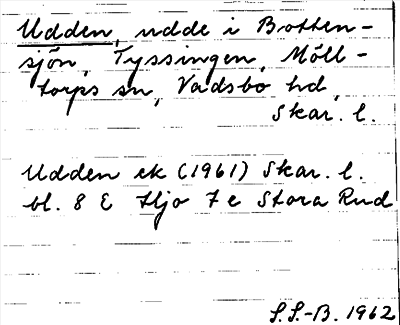 Udden, udde i Botten-
sjön, Tyssingen, Möll-
torps sn, Vadsbo hd,
Skar. l.
Udden ek (1961) Skar. l.
bl. 8 E Hjo 7 e Stora Rud
S.S.-B. 1962